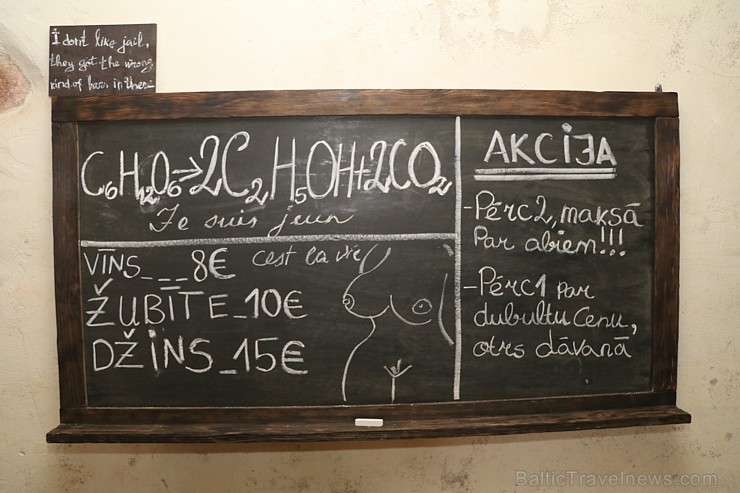 I don't like jail,
they got the wrong
kind of bars in there
C₆H₁₂O₆→2C₂H₅OH+2CO₂
Je suis jeun
VĪNS___8€
c'est la vie
ŽUBĪTE_10€
DŽINS_15€
AKCIJA
-Pērc 2, maksā
Par abiem!!!
-Pērc 1 par
dubultu Cenu,
otrs dāvanā
BalticTravelnews.com